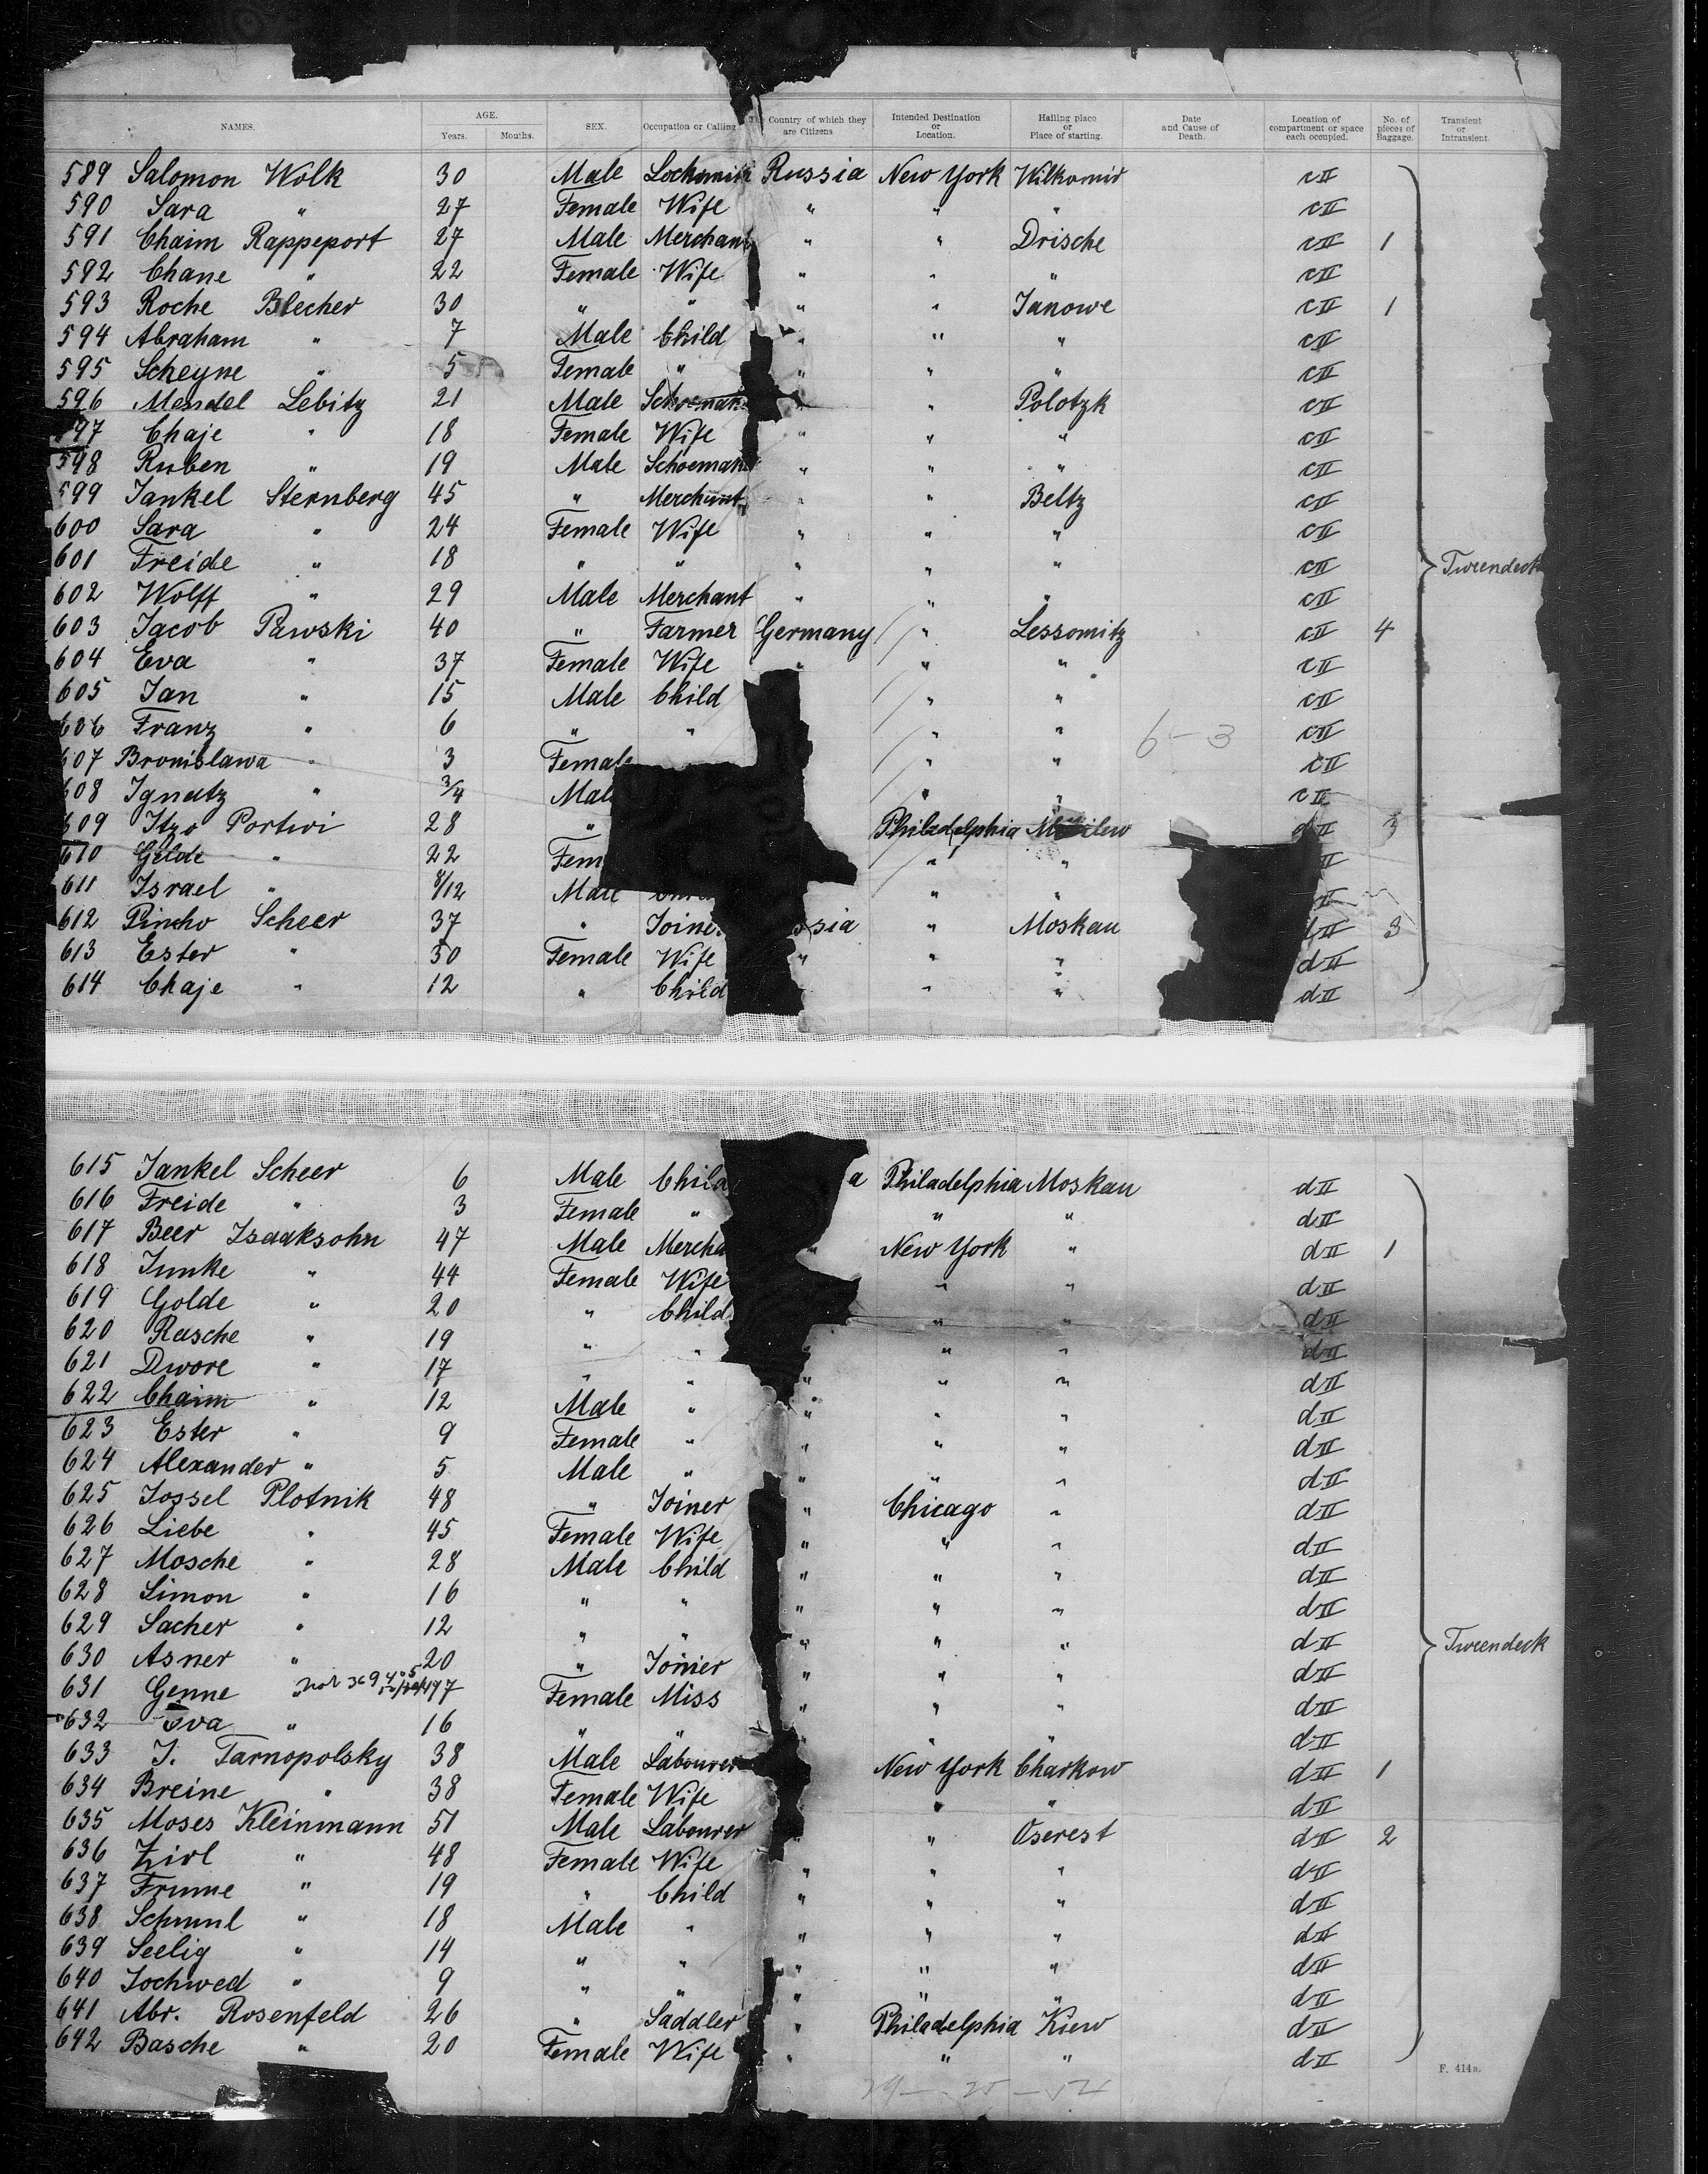 NAMES. AGE. Years. Months. SEX. Occupation or Calling Country of which they are Citizens Intended Destination or Location. Hailing place or Place of starting. Date and Cause of Death. Location of compartment or space each occupied. No. of pieces of Baggage. Transient or Intransient.
589 Salomon Wolk 30 Male Russia New York Wilkomir c II
590 Sara " 27 Female Wife " " " c II
591 Chaim Rappeport 27 Male Merchant " " Drische c II 1
592 Chane " 22 Female Wife " " " c II
593 Roche Blecher 30 " " " " Janowe c II 1
594 Abraham " 7 Male Child " " " c II
595 Scheyne " 5 Female " " " " c II
596 Mendel Lebitz 21 Male " Polotzk c II
597 Chaje " 18 Female Wife " " " c II
598 Ruben " 19 Male Schoemak " " " c II
599 Jankel Sternberg 45 " Merchant " " Beltz c II
600 Sara " 24 Female Wife " " " c II
601 Freide " 18 " " " " " c II Tweendeck
602 Wolff " 29 Male Merchant " " " c II
603 Jacob Pawski 40 " Farmer Germany " Lessomitz c II 4
604 Eva " 37 Female Wife " " " c II
605 Jan " 15 Male Child " " c II
606 Franz " 6 " " " " c II
6-3
607 Bronislawa " 3 Female " " c II
608 Ignatz " 3/4 Male " " c II
609 Itzo Portwi 28 " Philadelphia d II 3
610 Gilde " 22 Fem " " II
611 Israel " 8/12 Male " " II
612 Pincho Scheer 37 " Joiner ssia " Moskau d II 3
613 Ester " 30 Female Wife " " " d II
614 Chaje " 12 " Child " " d II
615 Jankel Scheer 6 Male Child a Philadelphia Moskau d II
616 Freide " 3 Female " " " d II
617 Beer Isaaksohn 47 Male Mercha " New York " d II 1
618 Junke " 44 Female Wife " " d II
619 Golde " 20 " Child " " d II
620 Rasche " 19 " " " " d II
621 Dwore " 17 " " " " " d II
622 Chaim " 12 Male " " " " d II
623 Ester " 9 Female " " " " d II
624 Alexander " 5 Male " " " " d II
625 Jossel Plotnik 48 " Joiner " Chicago " d II
626 Liebe " 45 Female Wife " " " d II
627 Mosche " 28 Male Child " " " d II
628 Simon " 16 " " " " " d II
629 Sacher " 12 " " " " " d II Tweendeck
630 Asner " 20 " Joiner " " " d II
631 Genne " 17 Female Miss " " " d II
632 Eva " 16 " " " " d II
633 J. Tarnopolsky 38 Male Labourer New York Charkow d II 1
634 Breine " 38 Female Wife " " d II
635 Moses Kleinmann 51 Male Labourer " " Oserest d II 2
636 Zirl " 48 Female Wife " " " d II
637 Frume " 19 " Child " " " d II
638 Schmul " 18 Male " " " " d II
639 Seelig " 14 " " " " " d II
640 Jochwed " 9 " " " " " d II
641 Abr. Rosenfeld 26 " Saddler " Philadelphia Kiew d II
642 Basche " 20 Female Wife " " " d II
F. 414a.